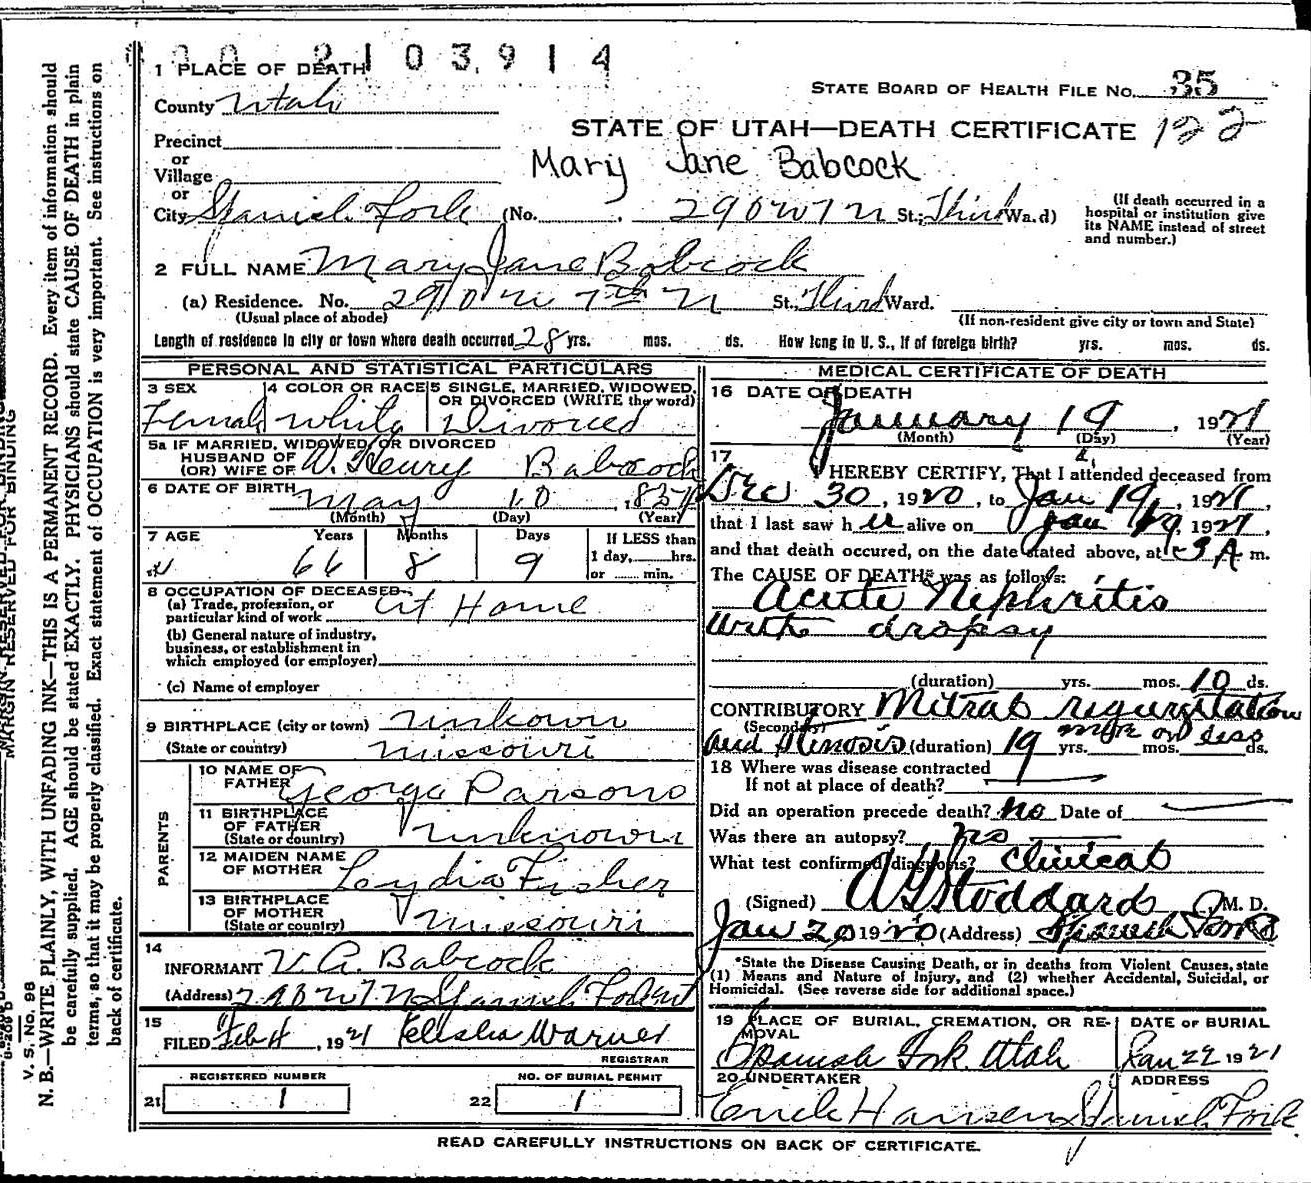 2103914
1 PLACE OF DEATH
STATE BOARD OF HEALTH FILE NO. 35
County Utah
STATE OF UTAH—DEATH CERTIFICATE 122
Precinct
Mary Jane Babcock
or
Village
or
City Spanish Fork (No. 290 W 7 N St.; Third Wa.d)
(If death occurred in a hospital or institution give its NAME instead of street and number.)
2 FULL NAME Mary Jane Babcock
(a) Residence. No. 290 W 7th N St., Third Ward.
(Usual place of abode)
(If non-resident give city or town and State)
Length of residence in city or town where death occurred 28 yrs. mos. ds. How long in U. S., if of foreign birth? yrs. mos. ds.
PERSONAL AND STATISTICAL PARTICULARS
3 SEX Female
4 COLOR OR RACE White
5 SINGLE, MARRIED, WIDOWED, OR DIVORCED (WRITE the word) Divorced
5a IF MARRIED, WIDOWED, OR DIVORCED
HUSBAND OF
(OR) WIFE OF W. Henry Babcock
6 DATE OF BIRTH May 10
(Month) (Day) (Year)
7 AGE Years Months Days If LESS than
66 8 9 1 day, hrs.
or min.
8 OCCUPATION OF DECEASED
(a) Trade, profession, or
particular kind of work At Home
(b) General nature of industry,
business, or establishment in
which employed (or employer)
(c) Name of employer
9 BIRTHPLACE (city or town) unkown
(State or country) Missouri
PARENTS
10 NAME OF
FATHER George Parsons
11 BIRTHPLACE
OF FATHER
(State or country) unknown
12 MAIDEN NAME
OF MOTHER Loydia Fisher
13 BIRTHPLACE
OF MOTHER
(State or country) Missouri
14
INFORMANT V. A. Babcock
(Address) 290 W 7 N Spanish Fork Ut
15
FILED Feb 4, 1921 Elisha Warner
REGISTRAR
REGISTERED NUMBER NO. OF BURIAL PERMIT
21 1 22 1
MEDICAL CERTIFICATE OF DEATH
16 DATE OF DEATH
January 19, 1921
(Month) (Day) (Year)
17
I HEREBY CERTIFY, That I attended deceased from
Dec 30, 1920, to Jan 19, 1921,
that I last saw h er alive on Jan 19, 1921,
and that death occured, on the date stated above, at 3 A m.
The CAUSE OF DEATH* was as follows:
Acute Nephritis
with dropsy
(duration) yrs. mos. 10 ds.
CONTRIBUTORY Mitral regurgitation
(Secondary)
and Stenosis (duration) 19 yrs. more or less mos. ds.
18 Where was disease contracted
If not at place of death?
Did an operation precede death? no Date of
Was there an autopsy? no
What test confirmed diagnosis? clinical
(Signed) A Stoddard M. D.
Jan 20 1920 (Address) Spanish Fork
*State the Disease Causing Death, or in deaths from Violent Causes, state
(1) Means and Nature of Injury, and (2) whether Accidental, Suicidal, or
Homicidal. (See reverse side for additional space.)
19 PLACE OF BURIAL, CREMATION, OR RE-
MOVAL
Spanish Fork Utah
DATE OF BURIAL
Jan 22 1921
20 UNDERTAKER ADDRESS
Erick Hansen Spanish Fork
READ CAREFULLY INSTRUCTIONS ON BACK OF CERTIFICATE.
MARGIN RESERVED FOR BINDING
V. S. No. 98
N. B.—WRITE PLAINLY, WITH UNFADING INK—THIS IS A PERMANENT RECORD. Every item of information should
be carefully supplied. AGE should be stated EXACTLY. PHYSICIANS should state CAUSE OF DEATH in plain
terms, so that it may be properly classified. Exact statement of OCCUPATION is very important. See instructions on
back of certificate.